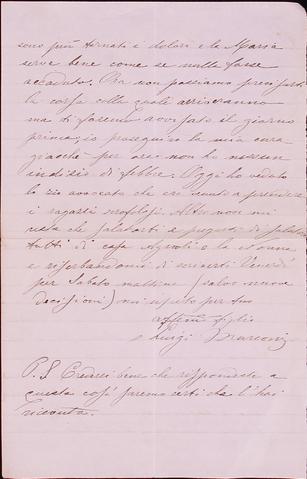 sono più tornati i dolori e la Maria
serve bene come se nulla fosse
accaduto. Ora non possiamo precisarti
la corsa colla quale arriveranno
ma ti faremo avvisato il giorno
prima, io proseguo la mia cura
giacchè per ora non ho nessun
indizio di febbre. Oggi ho veduto
lo zio avvocato che era venuto a prendere
i ragazzi . Altro non mi
resta che salutarti e pregarti di salutare
tutti di casa Agnoli e le donne
e riserbandomi di scriverti Venerdì
per Sabato mattina (salvo nuove
decisioni) mi ripeto per tuo
affmo figlio
Luigi
P.S. Crederei bene che rispondeste a
questa così saremo certi che l'hai
ricevuta.